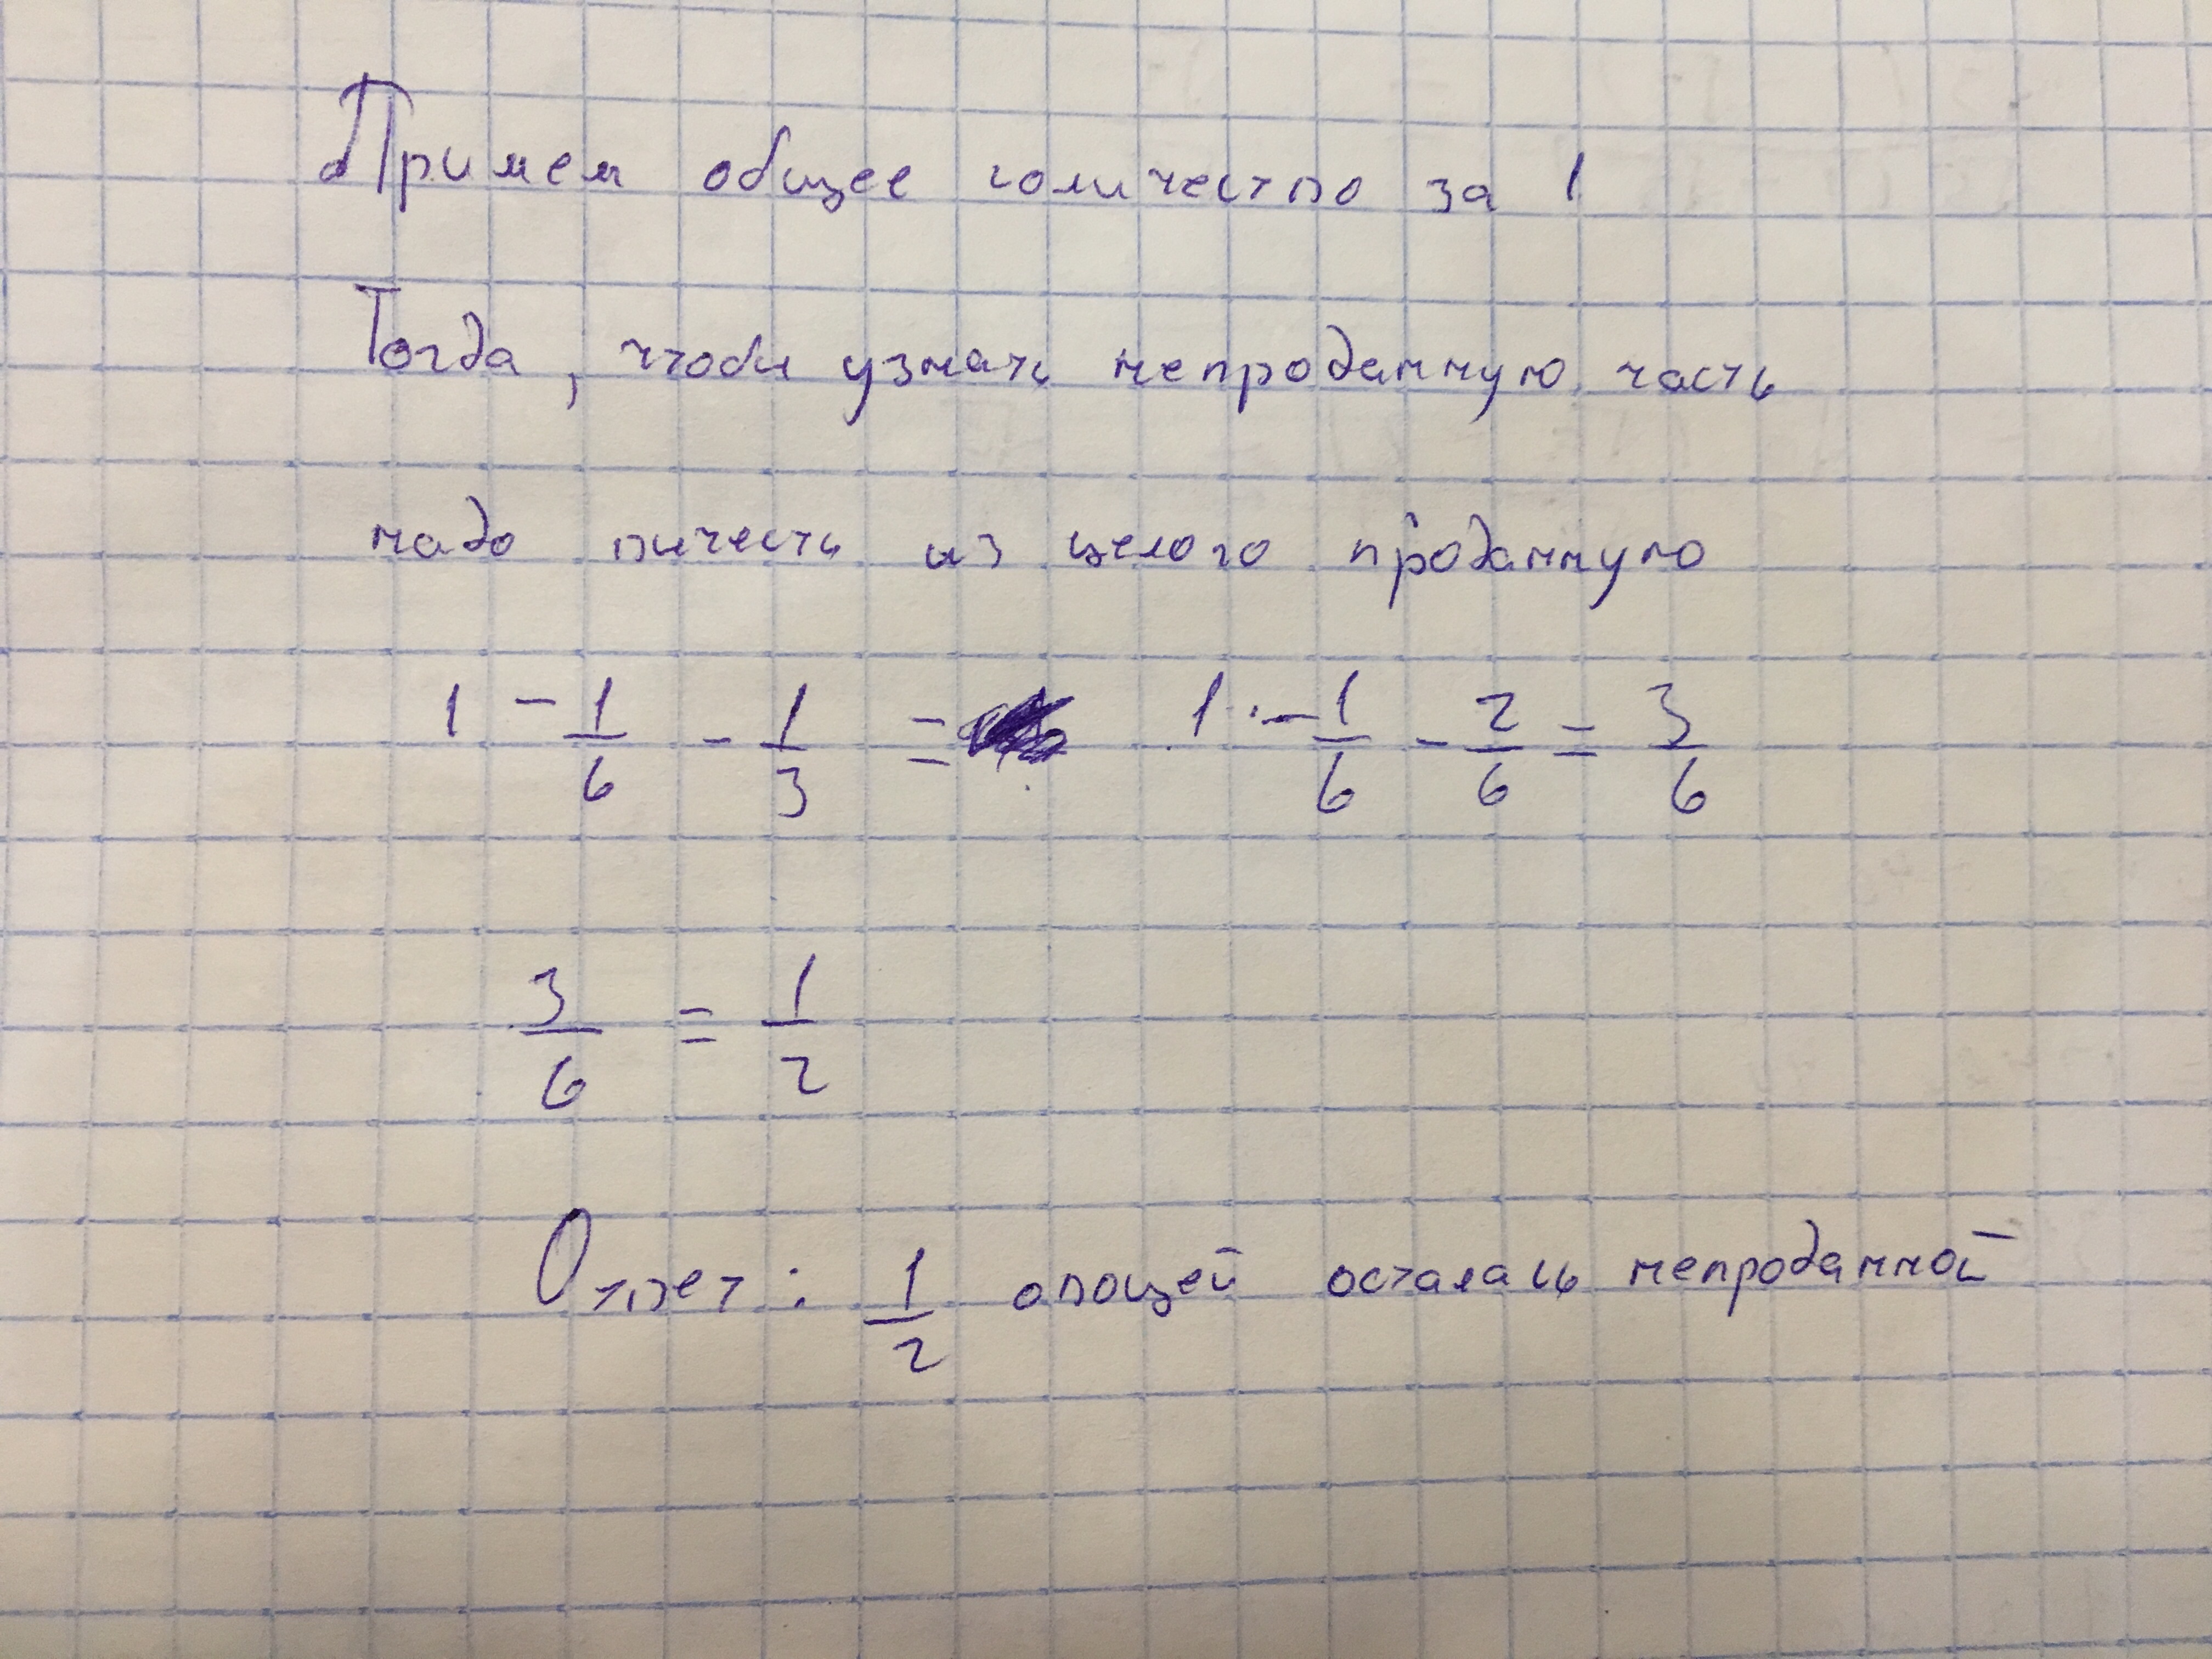 Примем общее количество за 1
Тогда, чтобы узнать непроданную часть
надо вычесть из целого проданную
1 - 1/6 - 1/3 = 1 - 1/6 - 2/6 = 3/6
3/6 = 1/2
Ответ: 1/2 овощей осталась непроданной